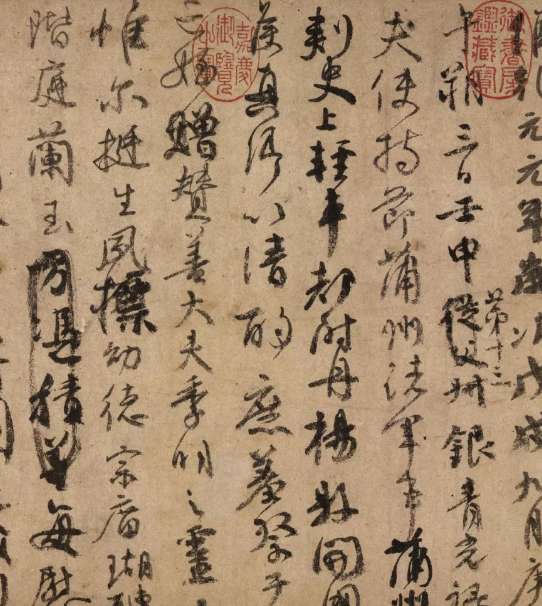 乾元元年歲次戊戌九月庚
午朔三日壬申第十三從父叔銀青光祿
夫使持節蒲州諸軍事蒲州
刺史上輕車都尉丹楊縣開國
侯真卿以清酌庶羞祭于
亡姪贈贊善大夫季明之靈
惟爾挺生夙標幼德宗廟瑚璉
階庭蘭玉方憑積善每慰
御書房鑑藏寶
嘉慶御覽之寶